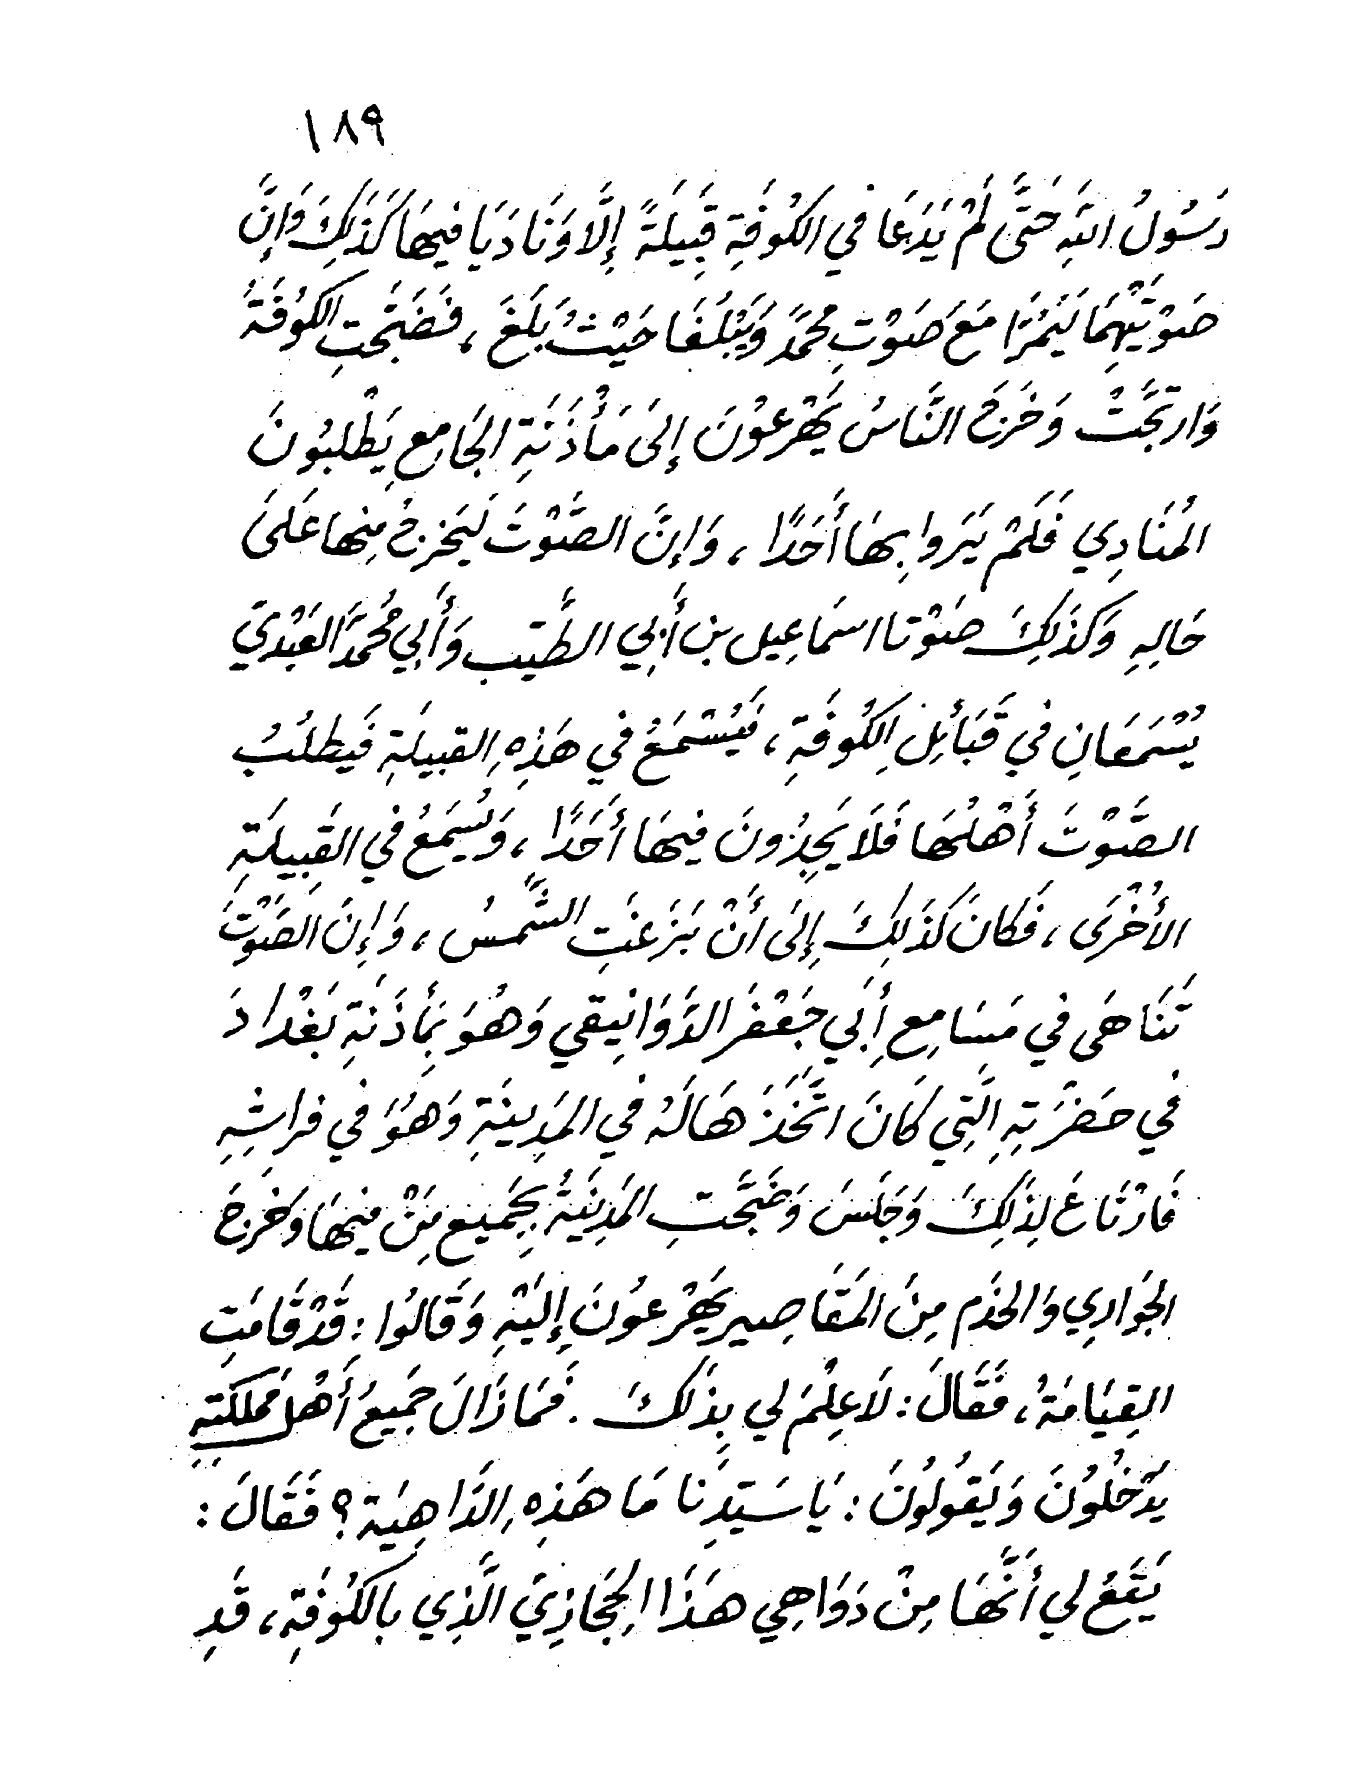 ١٨٩
رَسُولُ اللَّهِ حَتَّى لَمْ يَدَعَا فِي الكُوفَةِ قَبِيلَةً إِلَّا وَنَادَيَا فِيهَا كَذَلِكَ وَإِنَّ
صَوْتَيْهِمَا لَيَمُرَّا مَعَ صَوْتِ مُحَمَّدٍ وَيَبْلُغَا حَيْثُ بَلَغَ ، فَضَجَّتِ الكُوفَةُ
وَارتَجَّتْ وَخَرَجَ النَّاسُ يَهْرَعُوْنَ إِلَى مَأْذَنَةِ الجَامِعِ يَطْلُبُونَ
المُنَادِي فَلَمْ يَرَوا بِهَا أَحَدًا ، وَإِنَّ الصَّوْتَ لَيَخرجُ مِنِها عَلَىَ
حَالِهِ وَكَذَلِكَ صَوْتا اسمَاعِيل بن أَبِي الطَّيِّب وَأَبِي مُحَمَّدَ العَبْدِيّ
يُسْمَعَانِ فِي قَبَائِلِ الكُوفَةِ ، فَيُسْمَعُ فِي هَذِهِ القبيلَةِ فَيَطلُبُ
الصَّوْتَ أَهْلُهَا فَلَا يَجِدُونَ فِيهَا أَحَدًا ، وَيُسمَعُ فِي القَبِيلَةِ
الأُخْرَى ، فَكَانَ كَذَلِكَ إِلَى أَنْ بَزَغَتِ الشَّمسُ ، وَإِنَ الصَوْتَ
تَنَاهَى فِي مَسَامِعِ أَبِي جَعْفَر الدَّوَانِيقي وَهُوَ بِمَأذَنَةِ بَغْدادَ
فِي حَضْرَتِهِ الَّتِي كَانَ اتَّخَذَهَا لَهُ فِي المَدِينَةِ وَهوَُ فِي فراشِهِ
فَارْتَاعَ لِذَلِكَ وَجَلَسَ وَضَجَّتِ المَدِينَةُ بِجَميع مَِنْ فيهَا وَخَرجَ
الجَوَارِي وَالخدَم مِنَ المَقَاصِيرِ يَهْرعُونَ إِلَيْهِ وَقَالُوا : قَدْ قَامَتِ
القِيَامَةُ ، فَقَالَ : لَا عِلْمَ لي بِذَلكَ . فَمَا زَالَ جَمِيعُ أَهْل مَملكتِهِ
يَدْخُلُونَ وَيَقُولُونَ : يَا سَيِّدَنا مَا هَذِهِ الدَّاهِيَة ؟ فَقَالَ :
يَقَعُ لي أَنَّهَا مِنْ دَوَاهِي هَذَا الحِجَازِيّ الَّذِي بِالكُوفَةِ ، قَدِ